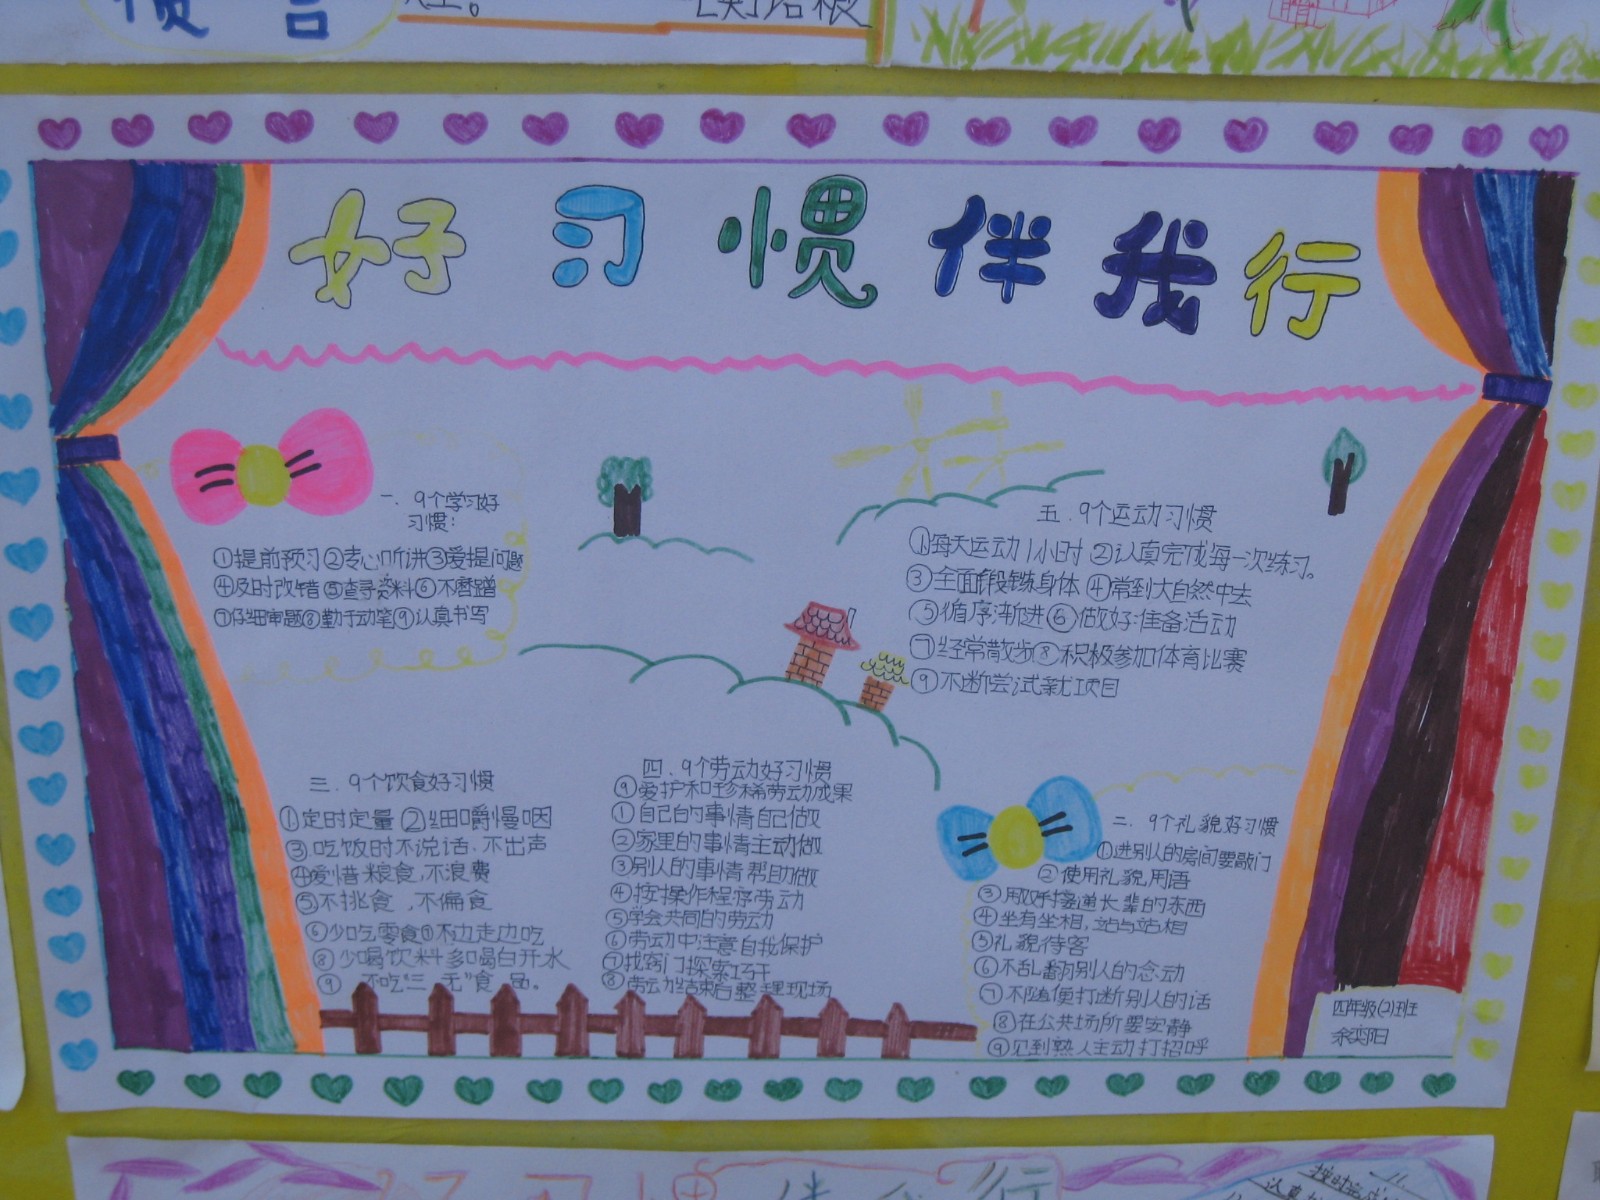 好习惯伴我行
一.9个学习好
习惯:
①提前预习②专心听讲③爱提问题
④及时改错⑤查寻资料⑥不磨蹭
⑦仔细审题⑧勤于动笔⑨认真书写
五.9个运动习惯
①每天运动1小时 ②认真完成每一次练习。
③全面锻练身体 ④常到大自然中去
⑤循序渐进⑥做好准备活动
⑦经常散步⑧积极参加体育比赛
⑨不断尝试新项目
三.9个饮食好习惯
①定时定量 ②细嚼慢咽
③.吃饭时不说话.不出声
④爱惜粮食,不浪费
⑤不挑食,不偏食
⑥少吃零食⑦不边走边吃
⑧少喝饮料多喝白开水
⑨ 不吃“三无”食品。
四.9个劳动好习惯
⑨爱护和珍稀劳动成果
①自己的事情自己做
②家里的事情主动做
③别人的事情帮助做
④按操作程序劳动
⑤学会共同的劳动
⑥劳动中注意自我保护
⑦找窍门探索巧干
⑧劳动结束后整理现场
二.9个礼貌好习惯
①进别人的房间要敲门
②使用礼貌用语
③用双手接递长辈的东西
④坐有坐相,站与站相
⑤礼貌待客
⑥不乱翻别人的念动
⑦不随便打断别人的话
⑧在公共场所要安静
⑨见到熟人主动打招呼
四年级(2)班
余奕阳